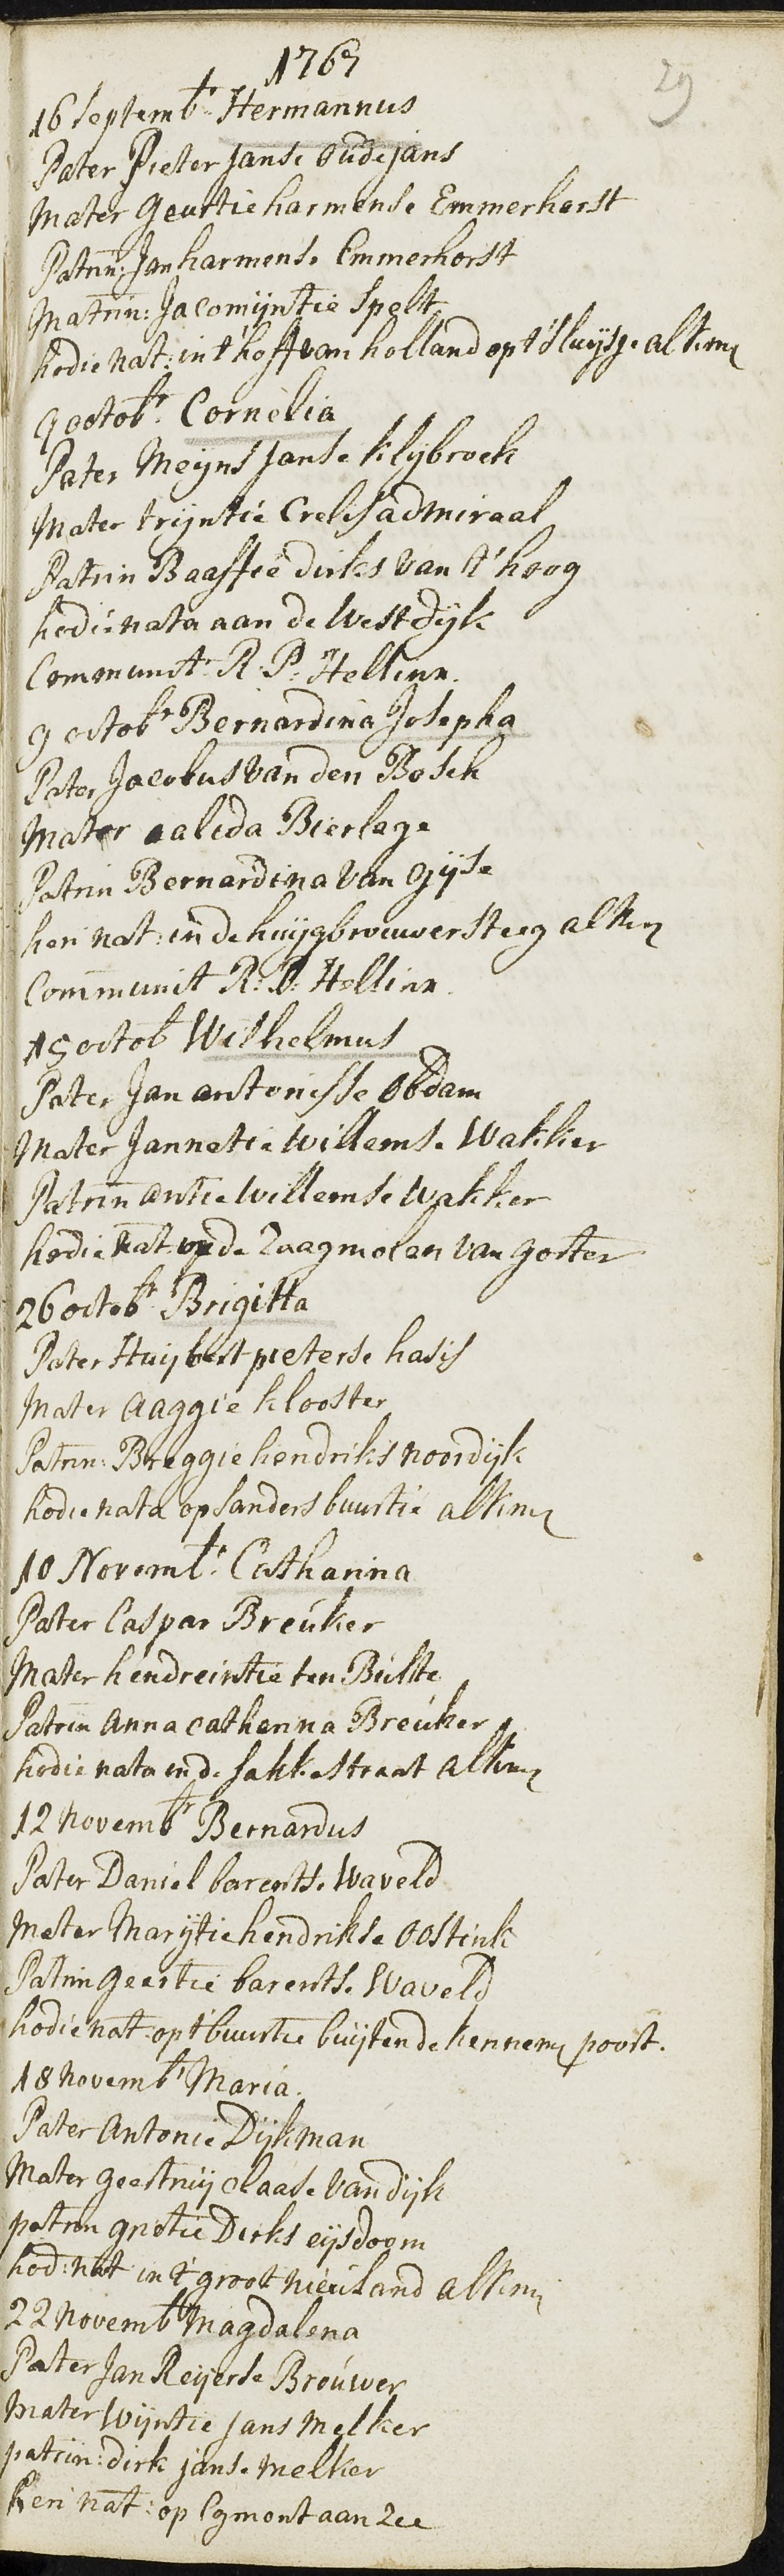 1767
29
16 Septembr. Hermannus
Pater Pieter Janse oudejans
Mater geurtie harmense Emmerhorst
Patrin: Jan harmense Emmerhorst
Matrin: Jacomijntie Spelt
hodie nat: in t'hoff van holland op t'sluijsje alkm
9 octobr. Cornelia
Pater Meijns Janse klijbroek
Mater trijntie Crelis admiraal
Patrin Baaffie dirks van t'hoog
hodie nata aan de Westdijk
Communit R: P: Hellinx.
9 octobr Bernardina Josepha
Pater Jacobus van den Bosch
Mater aalida Bierlage
Patrin Bernardina van Gijse
heri nat: in de huijgbrouwersteeg alkm
Communit R: P: Hellinx.
15 octob Wilhelmus
Pater Jan antonisse Obdam
Mater Jannetie Willemse Wakker
Patrin antie Willemse Wakker
hodie nat op de Zaagmolen van gorter
26 octobr Brigitta
Pater Huijbert pieterse hasis
Mater aaggie klooster
Patrin: Breggie hendriks noordijk
hodie nata op Sanders buurtie alkm
10 Novembr: Catharina
Pater Caspar Breúker
Mater hendreintie ten Búlte
Patrin anna catherina Breúker
hodie nata in de Sakkestraat alkm
12 novembr Bernardus
Pater Daniel barentse Waveld
Mater Marijtie hendrikse Oostink
Patrin geertie barentse Waveld
hodie nat: op t'buurtie buijten de kennem poort.
18 novembr Maria.
Pater antonie Dijkman
Mater geertruij claase van dijk
patrin grietie Dirks eijsdoom
hod: nat in t'groot nieúland alkm
22 novembr Magdalena
Pater Jan Reijerse Broúwer
Mater Wijntie Jans Melker
patrin: dirk janse melker
heri nat: op Egmont aan Zee